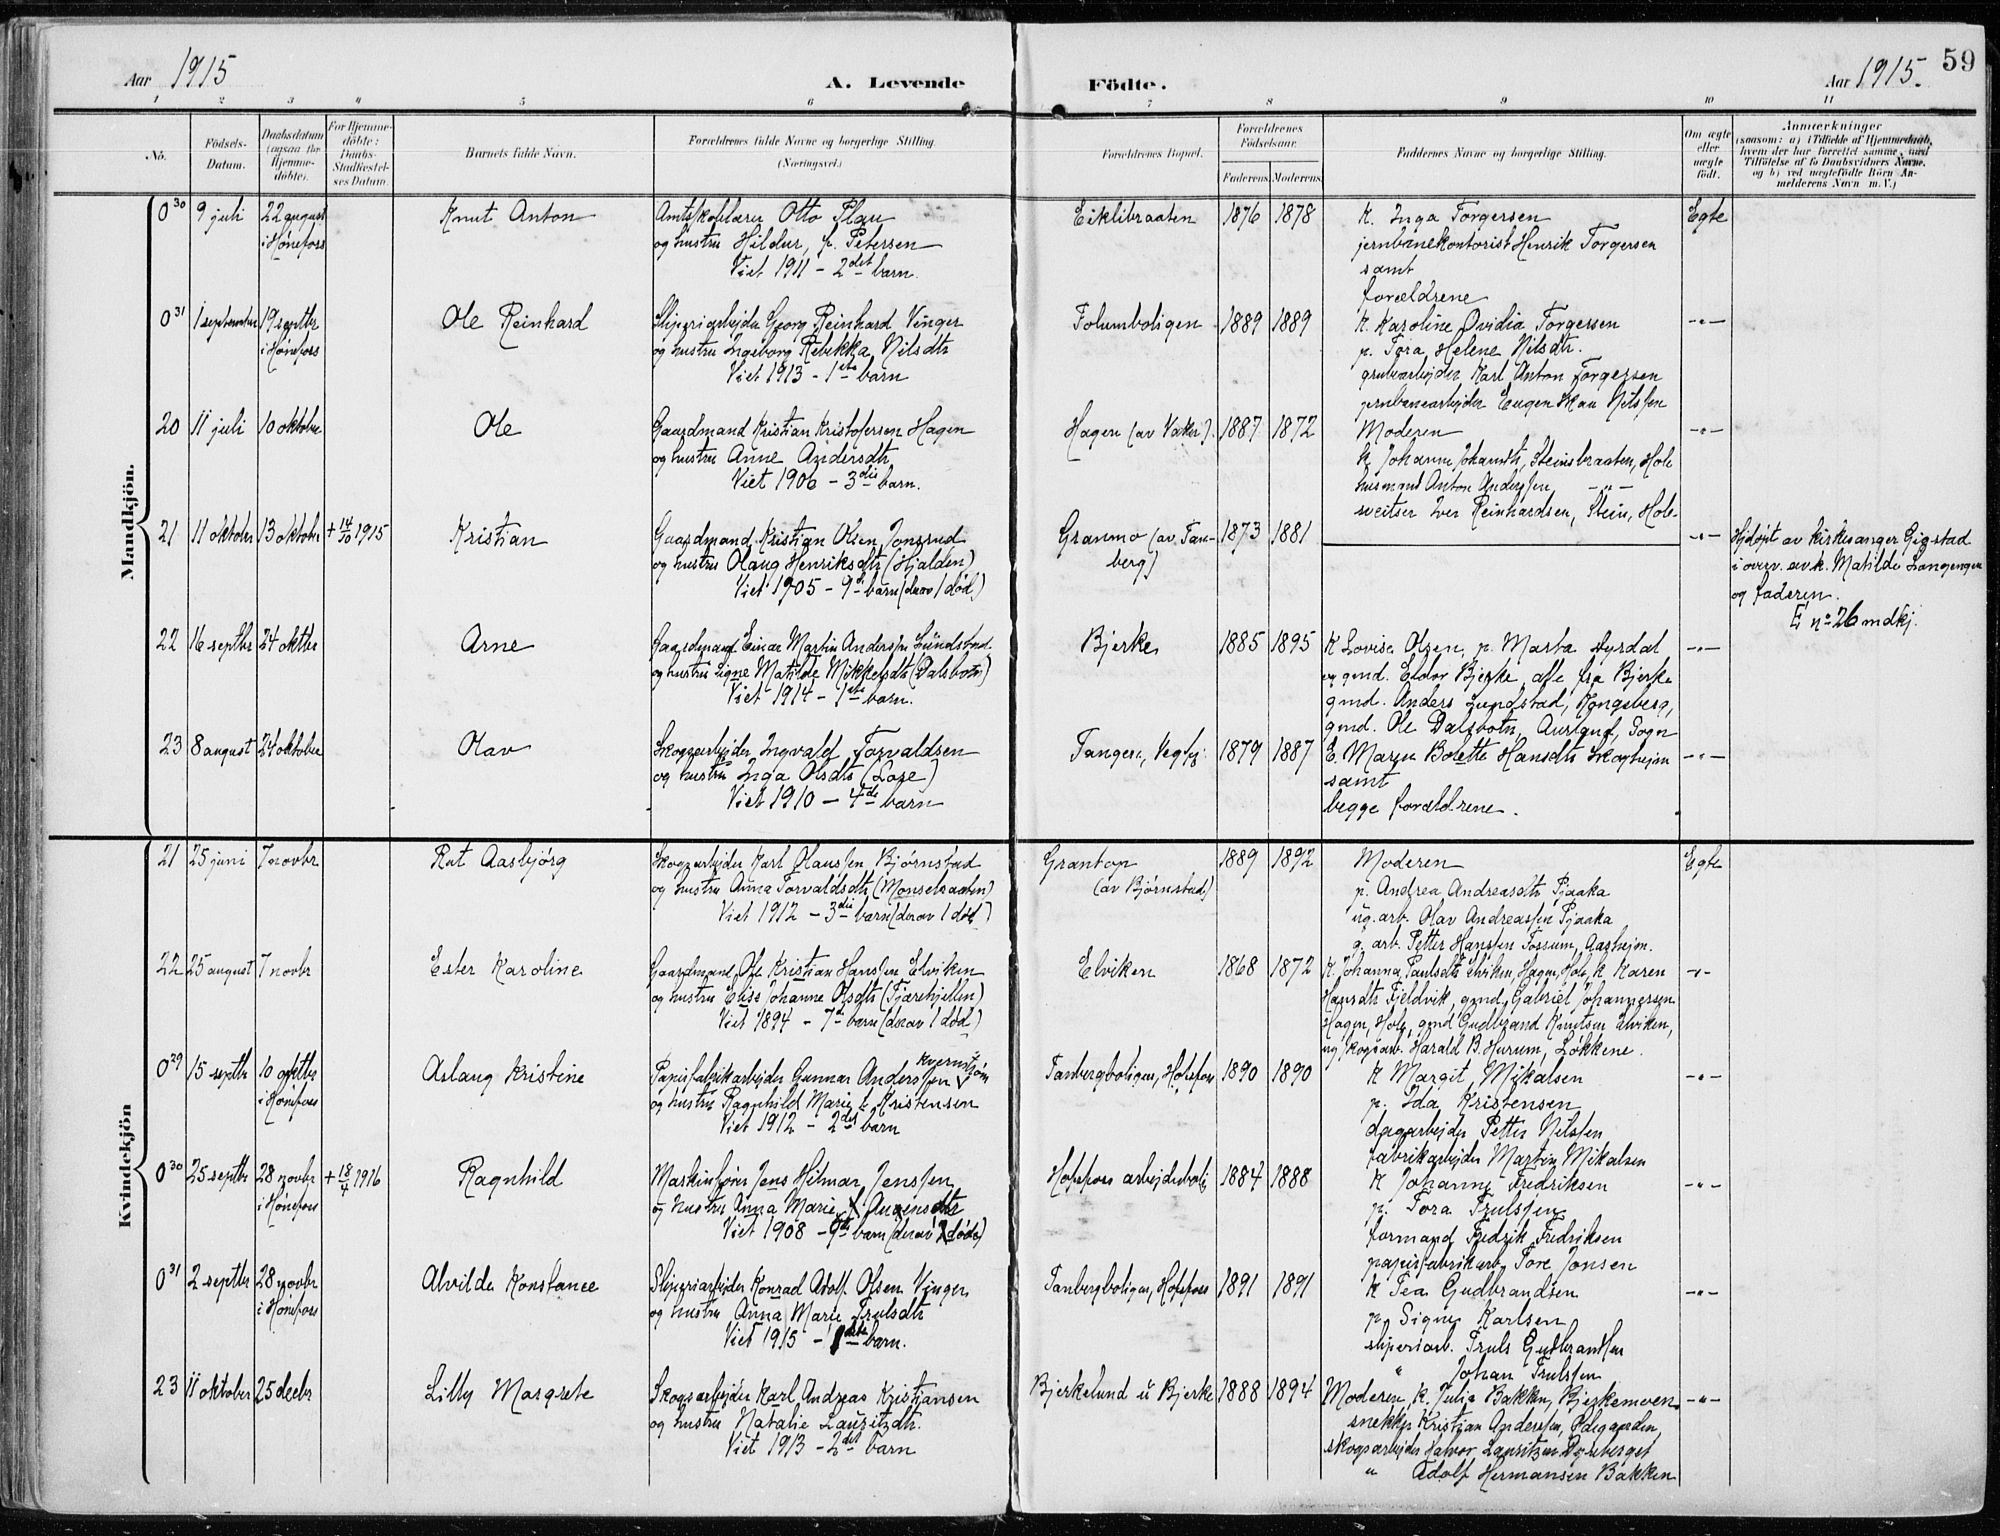 Aar 1915
A. Levende
Födte.
Aar 1915.
59
1 2 3 4 5 6 7 8 9 10 11
No.
Födsels-
Datum.
Daabsdatum
(ogsaa for
Hjemme-
döbte).
For Hjemme-
döbte:
Daabs-
Stadfæstel-
ses Datum.
Barnets fulde Navn.
Forældrenes fulde Navne og borgerlige Stilling.
(Næringsvei.)
Forældrenes Bopæl.
Forældrenes
Födselsaar.
Faderens. Moderens.
Faddernes Navne og borgerlige Stilling.
Om ægte
eller
uægte
født.
Anmærkninger
(saasom: a) i Tilfælde af Hjemmedaab,
hvem der har forrettet samme, med
Tilföielse af to Daabsvidners Navne,
og b) ved uægtefödte Börn An-
melderens Navn m. V.)
Mandkjön.
0 30 9 juli 22 august
i Hønefoss
Knut Anton
Amtsskolelærer Otto Plau
og hustru Hildur, f. Petersen
Viet 1911 – 2det barn.
Eiklibraaten 1876 1878
K. Inga Torgersen
jernbanekontorist Henrik Torgersen
samt
forældrene
Egte
0 31 1 september 19 septbr
i Hønefoss
Ole Reinhard
Sliperiarbejder Georg Reinhard Vinger
og hustru Ingeborg Rebekka Nilsdtr
Viet 1913 – 1ste barn
Folumboligen 1889 1889
K. Karoline Ovidia Torgersen
p. Tora Helene Nilsdtr.
grubearbejder Karl Anton Torgersen
jernbanearbejder Eugen Nilssen
–"–
20 11 juli 10 oktober
Ole
Gaardmand Kristian Kristofersen Hagen
og hustru Anne Andersdtr
Viet 1906 – 3die barn.
Hagen (av Vaker). 1887 1872
Moderen
k. Johanne Johansdtr, Steinsbraaten, Hole
husmand Anton Anderssen –"–
sveitser Iver Reinhardsen, Stein, Hole
–"–
21 11 oktober 13 oktober + 14/10 1915
Kristian
Gaardmand Kristian Olsen Jonsrud
og hustru Olaug Henriksdtr (Hjalden)
Viet 1905 – 9de barn (derav 1 død)
Granmo (av Tan-
berg) 1873 1881
–"–
Hjdøpt av kirkesanger Gigstad
i overv. av k. Matilde Langengen
og faderen.
E no 26 mdkj.
22 16 septbr 24 oktbr
Arne
Gaardmand Einar Martin Anderssen Lundstad
og hustru Signe Matilde Mikkelsdtr (Dalsbotn)
Viet 1914 – 1ste barn.
Bjerke 1885 1895
K Lovise Olsen, p. Marta Hyrdal
og gmd. Eldor Bjerke, alle fra Bjerke
gmd. Anders Lundstad, Kongsberg,
gmd. Ole Dalsbotn, Aurland, Sogn
–"–
23 8 august 24 oktober
Olav
Skogsarbejder Ingvald Torvaldsen
og hustru Inga Olsdtr (Lase)
Viet 1910 – 4de barn
Tangen, Vegfj: 1879 1887
E. Maren Bolette Hansdtr Skoghejm
samt
begge forældrene.
–"–
Kvindekjön
21 25 juni 7 novbr
Rut Aasbjørg
Skogsarbejder Karl Olaussen Bjørnstad
og hustru Anna Torvaldsdtr (Monsebraaten)
Viet 1912 – 3die barn (derav 1 død)
Grantop
(av Bjørnstad) 1889 1892
Moderen
p. Andrea Andreasdtr Pjaaka
ug. arb. Olav Andreassen Pjaaka
g. arb. Petter Hanssen Fossum, Aashejm.
Egte
22 25 august 7 novbr
Ester Karoline
Gaardmand Ole Kristian Hanssen Elviken
og hustru Elise Johanne Olsdtr (Fjærehjellen)
Viet 1894 – 7de barn (derav 1 død)
Elviken 1868 1872
K. Johanna Paulsdtr Elviken, Hagen, Hole, k. Karen
Hansdtr Fjeldvik, gmd. Gabriel Johannessen
Hagen, Hole, gmd Gudbrand Knutsen Elviken,
ug skogsarb. Harald B. Hurum, Løkkene.
–"–
0 29 15 septbr 10 oktbr
i Hønefoss
Aslaug Kristine
Papirfabrikarbejder Gunnar Anderssen Kvernstrøm
og hustru Ragnhild Marie f. Kristensen
Viet 1912 – 2det barn
Tanbergboligen, Hofsfoss 1890 1890
K Margit Mikalsen
p. Ida Kristensen
dagarbejder Petter Nilssen
fabrikarbejder Martin Mikalsen
–"–
0 30 25 septbr 28 novbr
i Hønefoss + 18/4 1916
Ragnhild
Maskinfører Jens Hilmar Jenssen
og hustru Anna Marie
Viet 1908 – barn (derav døde)
Hofsfoss arbejderbolig 1884 1888
K Johanne Fredriksen
p. Tora Trulssen
formand Fredrik Fredriksen
papirfabrikarb. Tore Jonsen
–"–
0 31 2 septbr 28 novbr
i Hønefoss
Alvilde Konstance
Sliperiarbejder Konrad Adolf Olsen Vinger
og hustru Anna Marie Trulsdtr
Viet 1915 – 1ste barn.
Tanbergboligen, Hofsfoss 1891 1891
K Tea Gudbrandsen
p. Signe Karlsen
sliperiarb. Truls Gudbrandsen
" Johan Trulssen
–"–
23 11 oktober 25 decbr
Lilly Margrete
Skogsarbejder Karl Andreas Kristiansen
og hustru Natalie Lauritzdtr.
Viet 1913 – 2det barn
Bjerkelund u Bjerke 1888 1894
Moderen, k. Julie Bakken, Bjerkemoen
snekker Kristian Anderssen, Ødegaarden,
skogsarbejder Halvor Lauritzen Dyreberget
" Adolf Hermansen Bakken
–"–